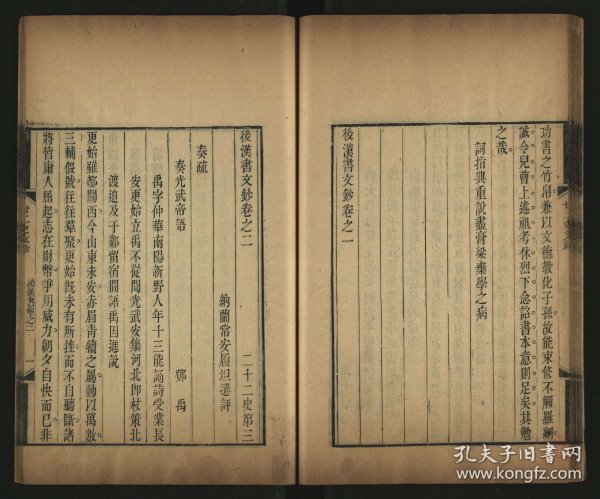 功書之竹帛兼以文德教化子孫故能束修不觸羅網
誠令兒曹上述祖考休烈下念詔書本意則足矣其勉
之哉
詞指典重說盡膏粱棄學之病
後漢書文鈔卷之一
後漢書文鈔卷之二
二十二史第三
納蘭常安履坦選評
奏疏
奏光武帝語
鄧禹
禹字仲華南陽新野人年十三能誦詩受業長
安更始立禹不從聞光武安集河北即杖策北
渡追及于鄴留宿間語禹因進說
更始雖都關西今山東未安赤眉青犢之屬動以萬數
三輔假號往往羣聚更始既未有所挫而不自聽斷諸
將皆庸人屈起志在財幣爭用威力朝夕自快而已非
後漢書卷之二
一
孔夫子旧书网
www.kongfz.com